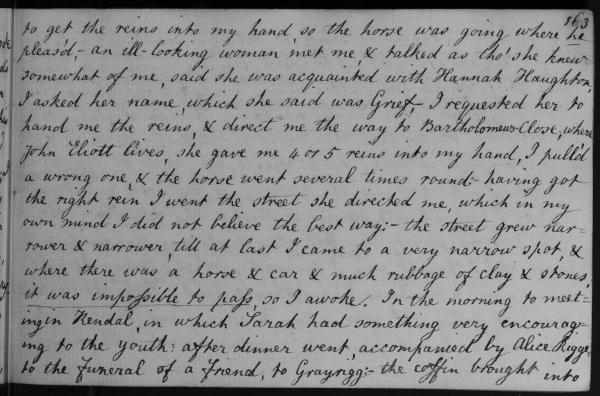 163
to get the reins into my hand, so the horse was going where he
pleas'd,- an ill-looking woman met me, & talked as tho' she knew
somewhat of me, said she was acquainted with Hannah Haughton,
I asked her name, which she said was Grief,- I requested her to
hand me the reins, & direct me the way to Bartholomew-Close, where
John Eliott lives, she gave me 4 or 5 reins into my hand, I pull'd
a wrong one, & the horse went several times round:- having got
the right rein I went the street she directed me, which in my
own mind I did not believe the best way:- the street grew nar-
rower & narrower, till at last I came to a very narrow spot, &
where there was a horse & car & much rubbage of clay & stones,
it was impossible to pass, so I awoke. In the morning to meet-
ing in Kendal, in which Sarah had something very encourag-
ing to the youth: after dinner went, accompanied by Alice Rigge,
to the funeral of a friend, to Grayrigg:- the coffin brought into